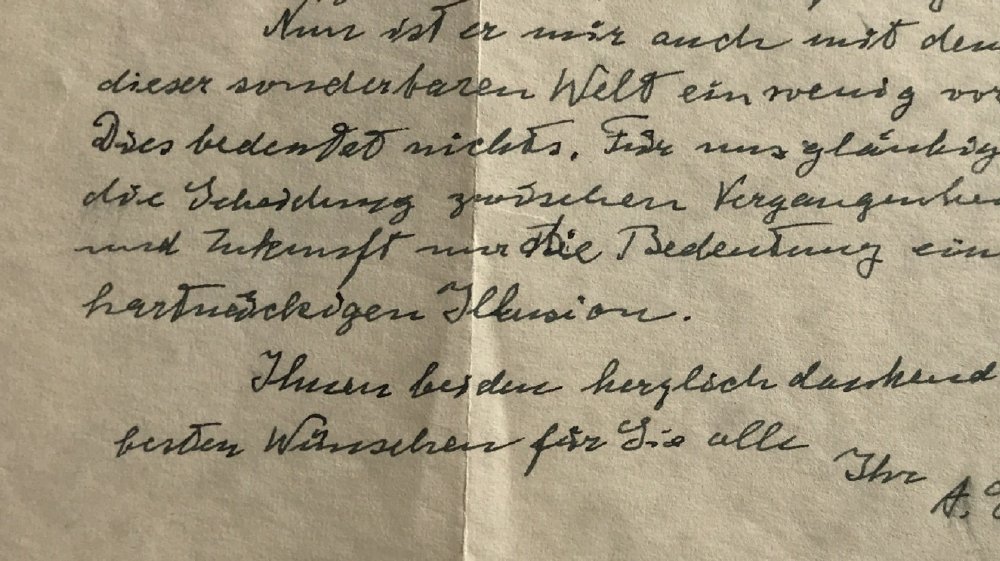 Nun ist er mir auch mit dem
dieser sonderbaren Welt ein wenig vor
Dies bedeutet nichts. Für uns gläubig
die Scheidung zwischen Vergangenhe
und Zukunft nur die Bedeutung ein
hartnäckigen Illusion.
Ihnen beiden herzlich dankend
besten Wünschen für Sie alle
Ihr A.